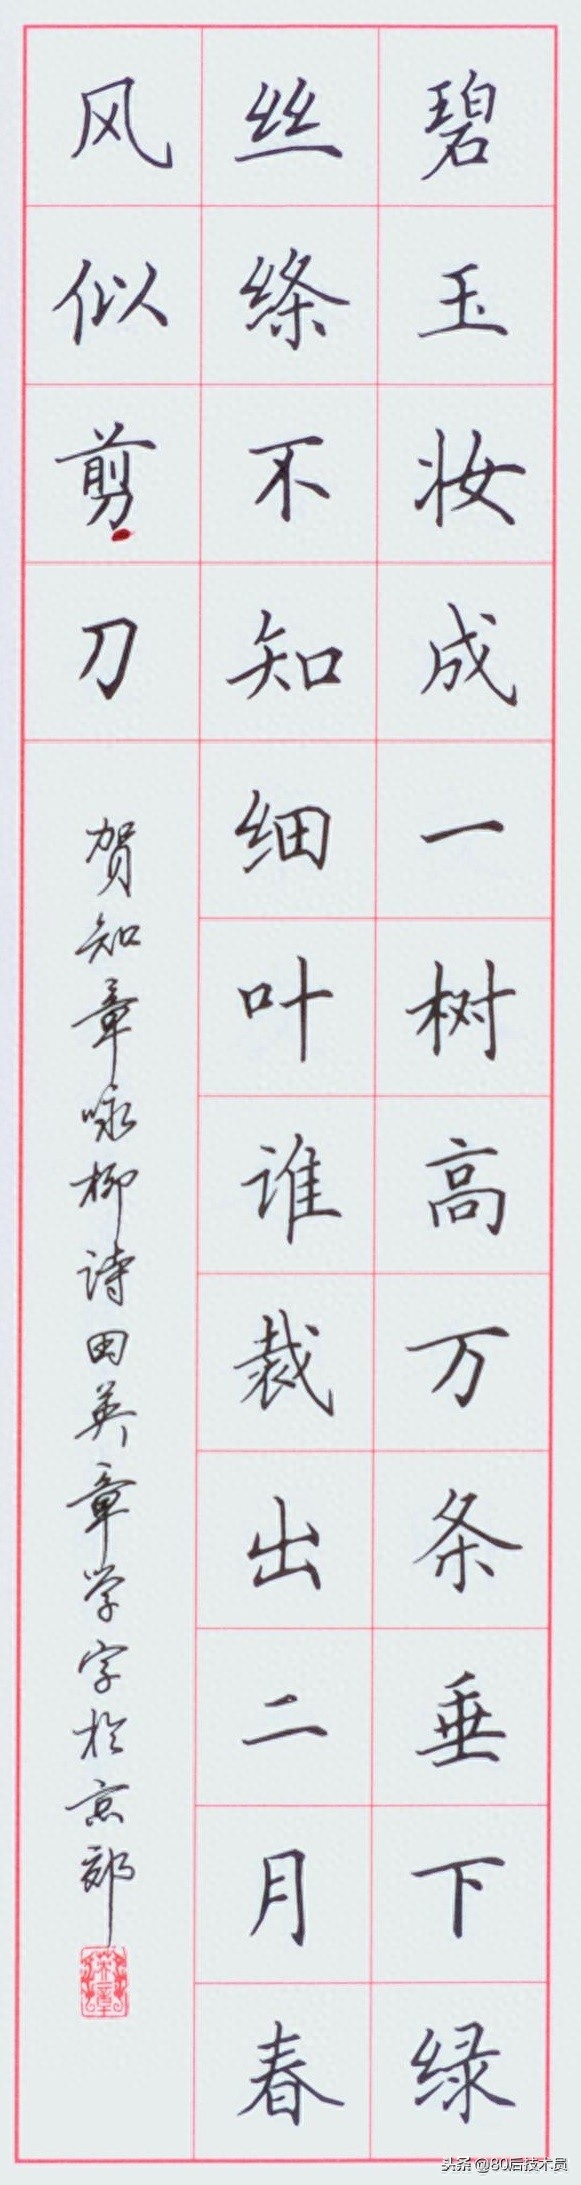 碧玉妆成一树高万条垂下绿
丝绦不知细叶谁裁出二月春
风似剪刀
贺知章咏柳诗田英章学字于京郊
英章
头条@80后技术员